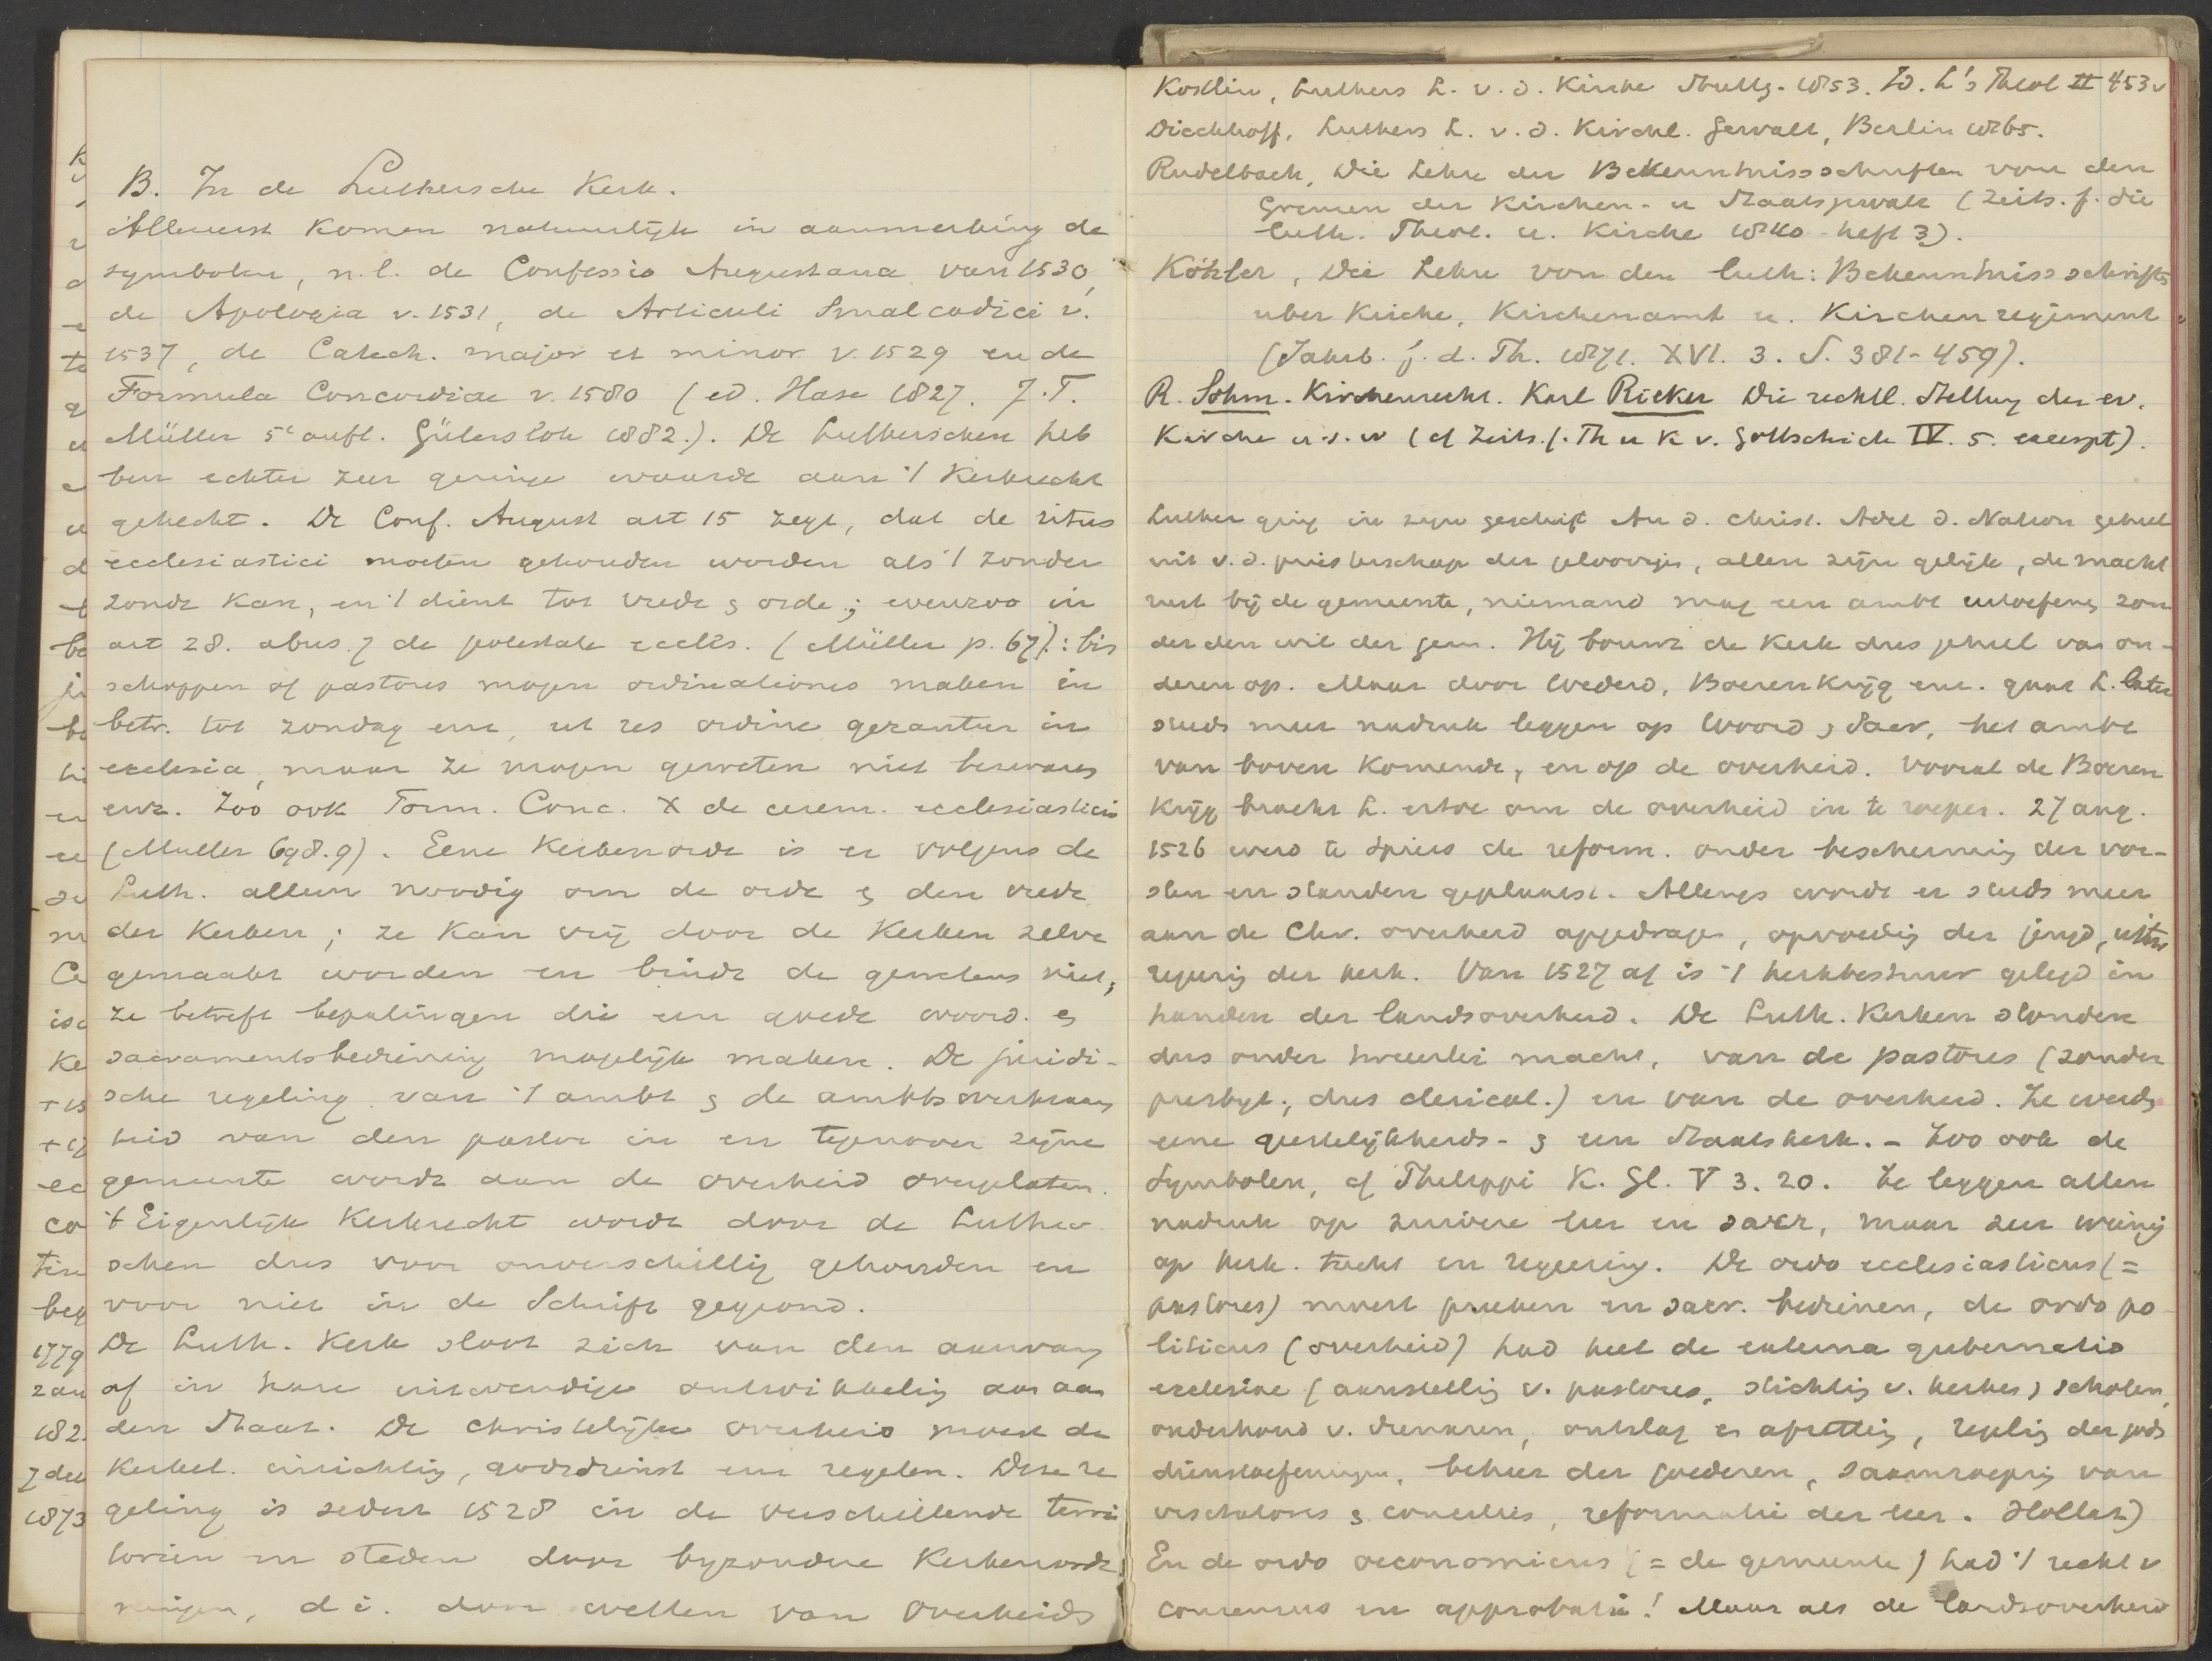 B. In de Luthersche Kerk.
Allereerst komen natuurlijk in aanmerking de
symbolen, n.l. de Confessio Augustana van 1530,
de Apologia v. 1531, de Articuli Smalcadici v.
1537, de Catech. major et minor v. 1529 en de
Formula Concordiae v. 1580 (ed. Hase 1827. J.T.
Müller 5e aufl. Gütersloh 1882.). De Lutherschen heb
ben echter zeer geringe waarde aan 't Kerkrecht
gehecht. De Conf. August art 15 zegt, dat de ritus
ecclesiastici moeten gehouden worden als 't zonder
zonde kan, en 't dient tot vrede & orde; evenzoo in
art 28. abus. 7 de potestate eccles. (Müller p. 67): bis
schoppen of pastores mogen ordinationes maken in
betr. tot zondag enz, ut res ordine gerantur in
ecclesia, maar ze mogen geweten niet bezwaren
enz. Zoo ook Form. Conc. X de cerem. ecclesiasticis
(Muller 698.9). Eene Kerkenorde is er volgens de
Luth. alleen noodig om de orde & den vrede
der Kerken; ze kan vrij door de Kerken zelve
gemaakt worden en bindt de gewetens niet;
ze betreft bepalingen die een goede woord. &
sacramentsbediening mogelijk maken. De juridi-
sche regeling van 't ambt & de ambts
heid van den pastor in en tegenover zijne
gemeente wordt aan de overheid overgelaten.
't Eigenlijk Kerkrecht wordt door de Luther
schen dus voor onverschillig gehouden en
voor niet in de Schrift gegrond.
De Luth. Kerk sloot zich van den aanvang
af in hare uitwendige ontwikkeling aan aan
den Staat. De christelijke overheid moest de
Kerkel. inrichting, godsdienst enz regelen. Deze re
geling is sedert 1528 in de verschillende terri
toriën en steden door byzondere Kerkenorde
ningen, d.i. door wetten van Overheids
Kostlin, Luthers L. v. d. Kirche Stuttg. 1853. Id. L's Theol II 453v
Dieckhoff, Luthers L. v. d. Kirchl. Gewalt, Berlin 1865.
Rudelbach, Die Lehre der Bekenntnissschriften von den
Grenzen der Kirchen- u Staatsgewalt (Zeits. f. die
luth. Theol. u. Kirche 1840 heft 3).
Köhler, Die Lehre von den luth: Bekenntnissschriften
uber Kirche, Kirchenamt u. Kirchenregiment
(Jahrb. f. d. Th. 1871. XVI. 3. S. 381-459).
R. Sohm. Kirchenrecht. Karl Rieker Die rechtl. Stellung der ev.
Kirche u.s.w (cf Zeits. f. Th u K v. Gottschick IV. 5. excerpt).
Luther ging in zijn geschrift An d. christ. Adel d. Nation geheel
uit v. d. priesterschap der geloovigen, allen zijn gelijk, de macht
rust bij de gemeente, niemand mag een ambt uitoefenen zon
der den wil der gem. Hij bouwt de Kerk dus geheel van on-
deren op. Maar door Wederd, Boerenkrijg enz. gaat L. later
steeds meer nadruk leggen op Woord & Sacr, het ambt
van boven komende, en op de overheid. Vooral de Boeren
krijg bracht L. ertoe om de overheid in te roepen. 27 aug.
1526 werd te Spiers de reform. onder bescherming der vor-
sten en standen geplaatst. Allengs wordt er steeds meer
aan de Chr. overheid opgedragen, opvoeding der jeugd,
regering der kerk. Van 1527 af is 't kerkbestuur gelegd in
handen der landsoverheid. De Luth. Kerken stonden
dus onder tweeërlei macht, van de pastores (zonder
presbyt., dus clerical.) en van de overheid. Ze werden
eene geestelijkheids- & een Staatskerk. - Zoo ook de
Symbolen, cf Philippi K. Gl. V 3. 20. Ze leggen allen
nadruk op zuivere leer en sacr, maar zeer weinig
op kerk. tucht en regeering. De ordo ecclesiasticus (=
pastores) moest preeken en sacr. bedienen, de ordo po
liticus (overheid) had heel de externa gubernatio
ecclesiae (aanstelling v. pastores, stichting v. kerken & scholen,
onderhoud v. dienaren, ontslag en afzetting, regeling der gods
dienstoefeningen, beheer der goederen, saamroeping van
visitatores & concilies, reformatie der leer. Hollaz)
En de ordo oeconomicus (= de gemeente) had 't recht v
consensus en approbatie! Maar als de landsoverheid